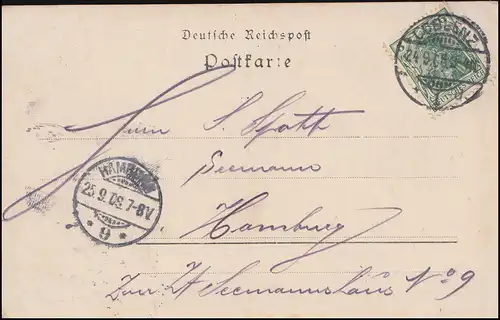 Deutsche Reichspost
Postkarte
COBLENZ
24.9.
Herrn S. Spott
Seemann
Hamburg
HAMBURG
25.9.09.7-8V.
* 9 *
Zur Zt Seemannshaus No 9